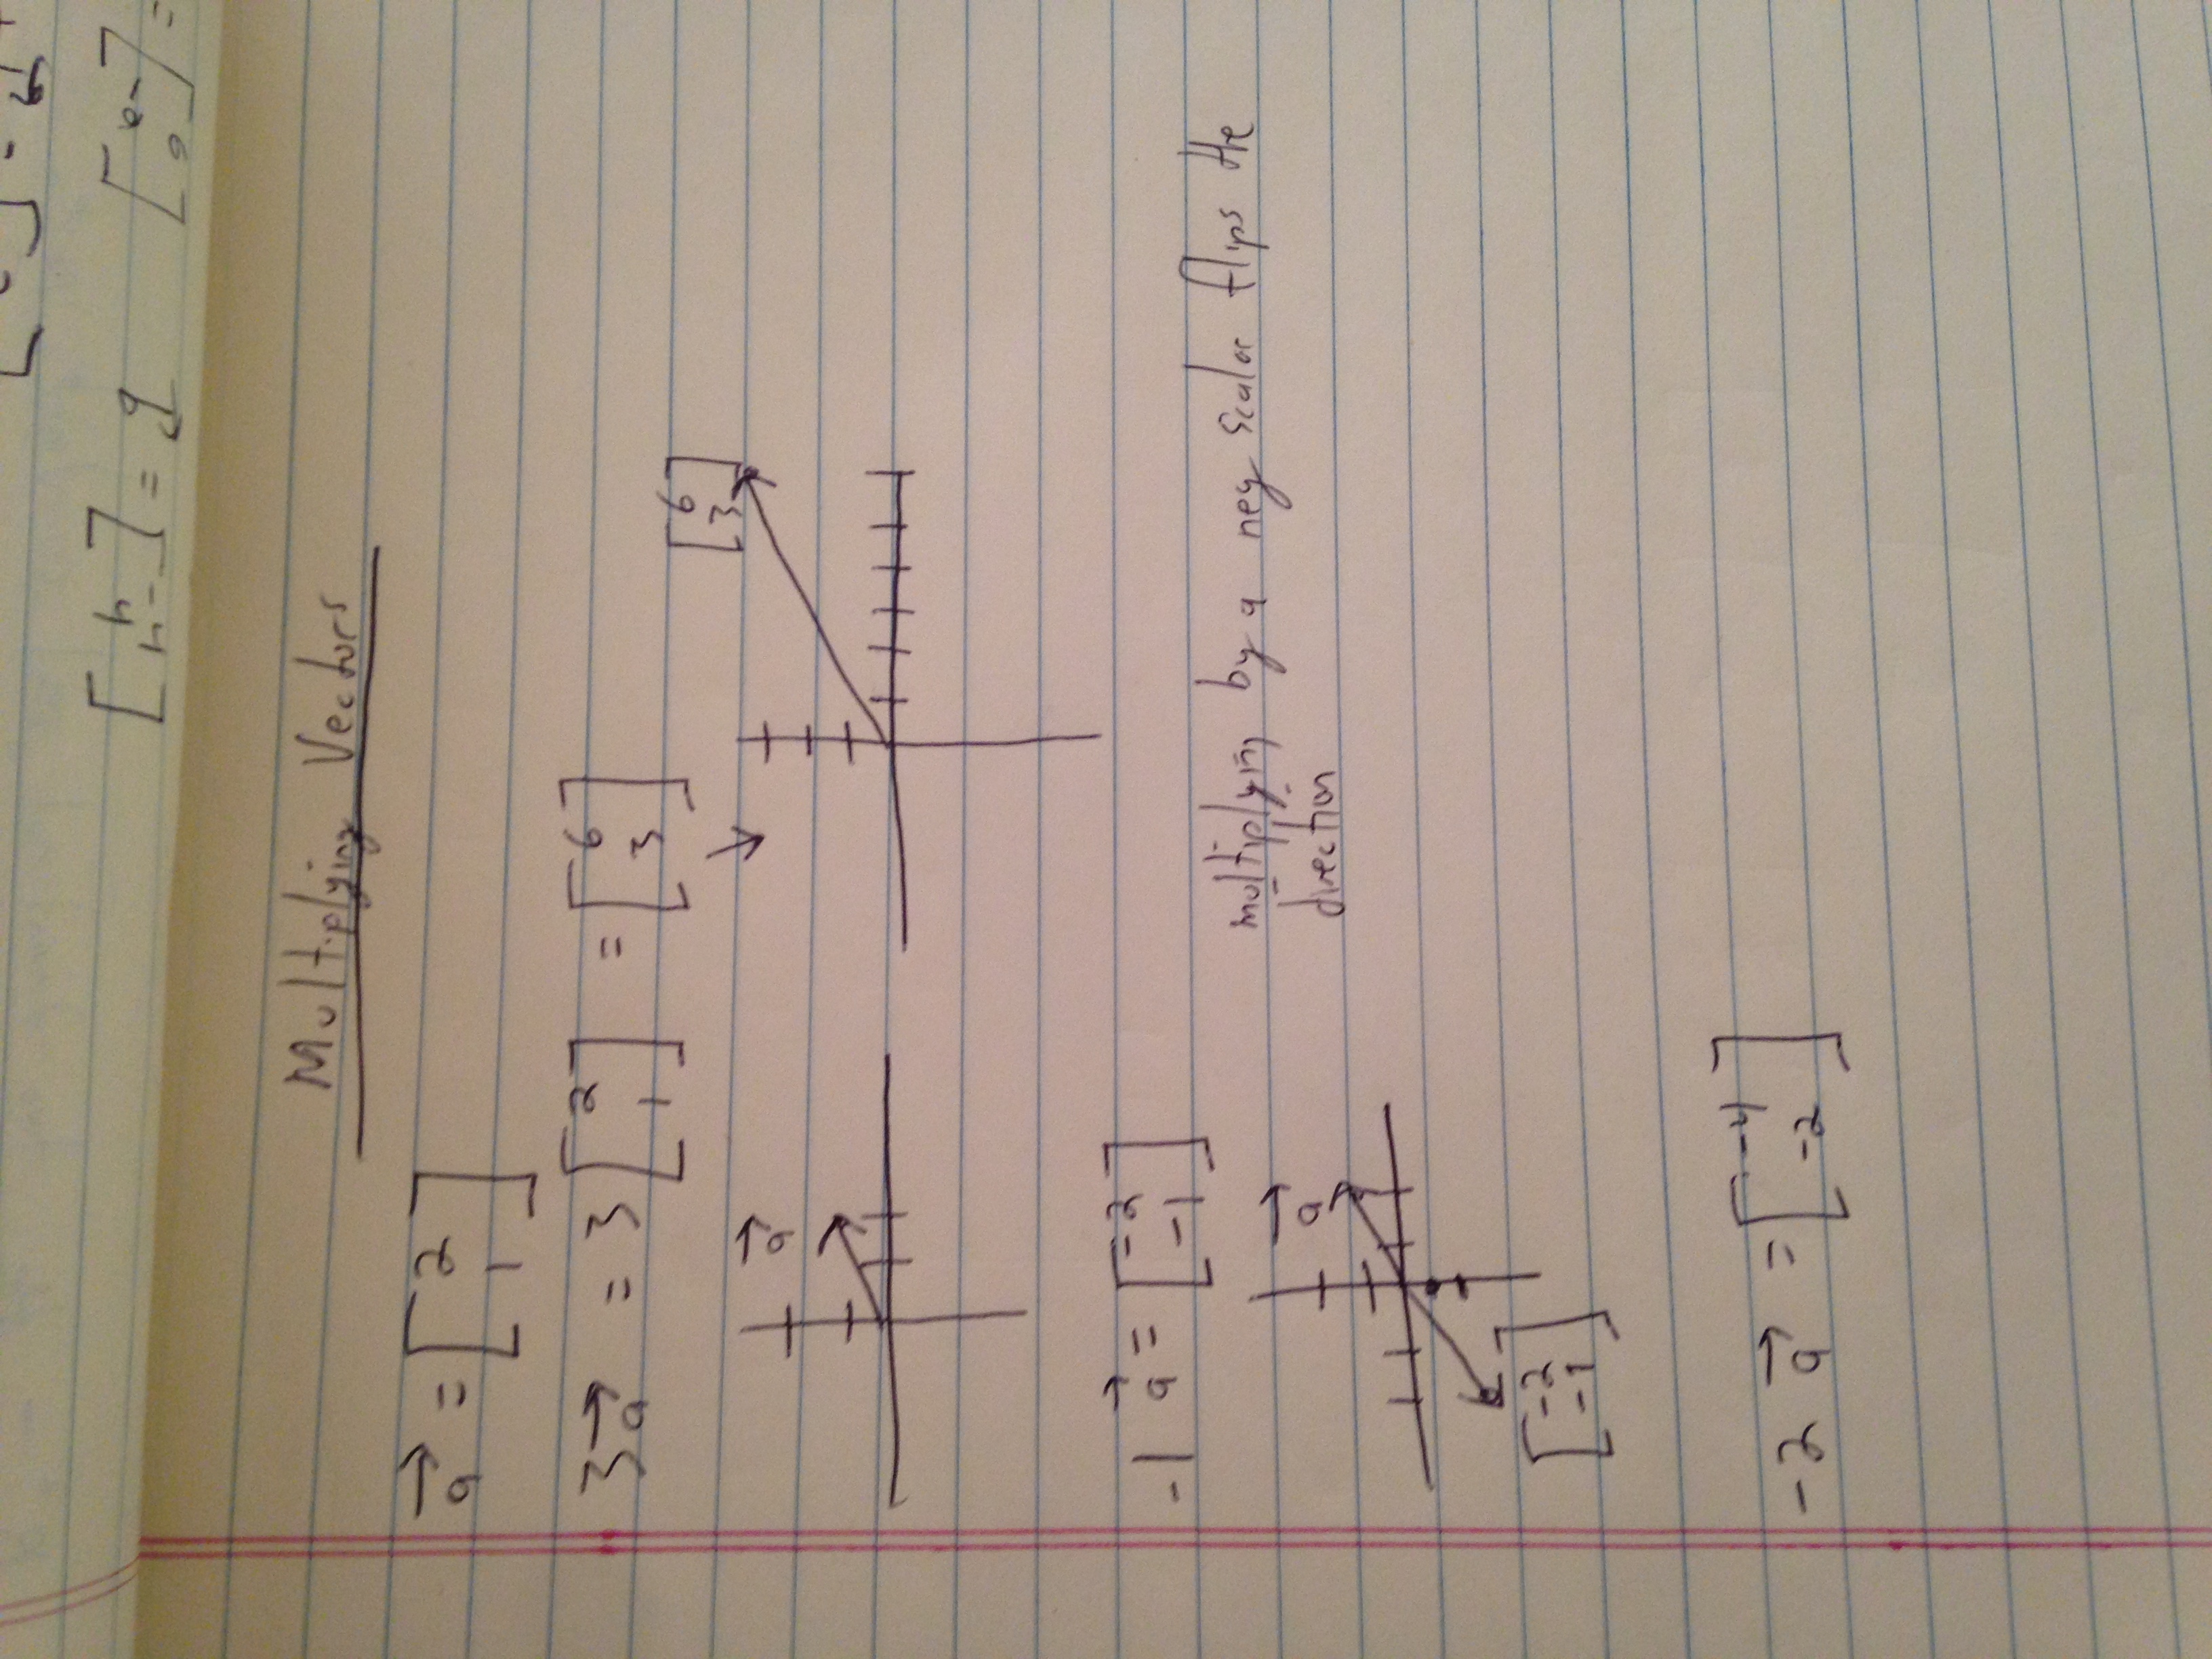 Multiplying Vectors
a = [2 1]
3a = 3 [2 1] = [6 3]
[6 3]
a
-1 a = [-2 -1]
multiplying by a neg scalar flips the
direction
a
[-2 -1]
-2 a = [-4 -2]